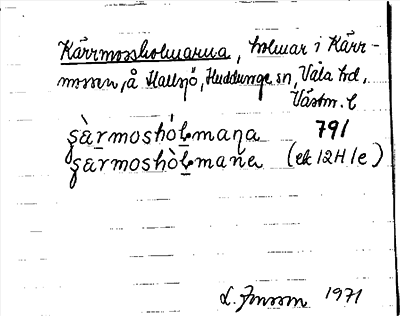 Kärrmossholmarna, holmar i Kärr-
mossen, å Hallsjö, Huddunge sn, Våla hd,
Västm. l
791
şàrmoshòlmaṇa
şarmoshòlmaṇa (ek 12H 1e)
L. Jonsson 1971